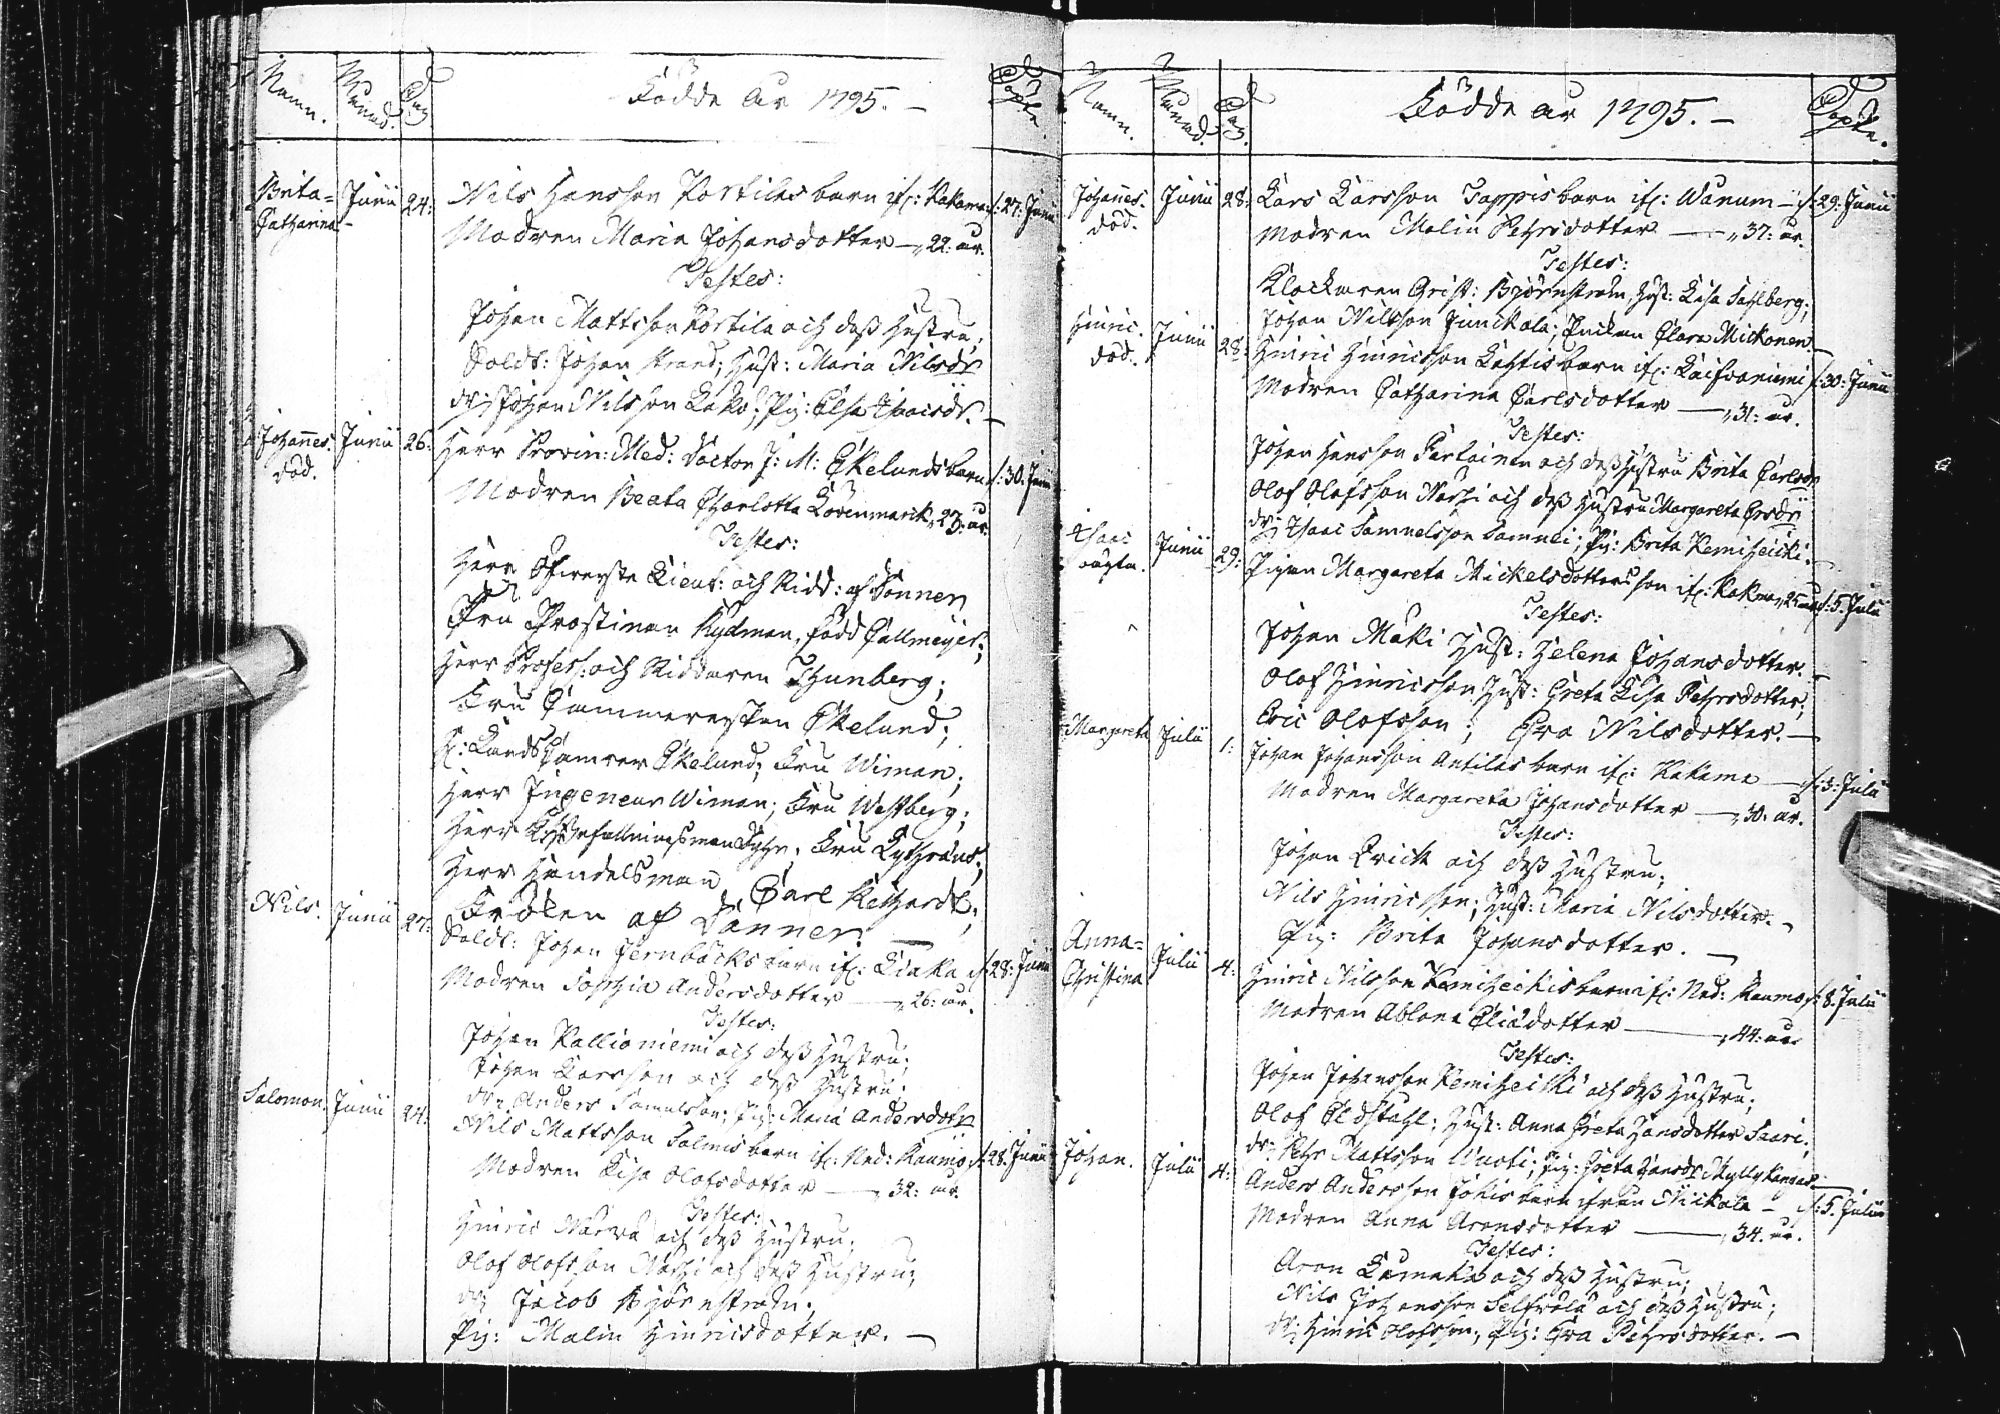 Namn. Månad. Dag Födde År 1795. Döpte.
Brita= Junii 24: Nils Hansson Portilas barn if: Kakama d: 27: Junii
Catharina Modren Maria Johansdotter — 22: år.
Testes:
Johan Mattsson Portila och dess hustru;
Soldt: Johan Strand; Hust: Maria Nilsdr
dr: Johan Nilsson Kako; Pig: Elsa Isacsdr. —
Johannes. Junii 26: Herr Provin: Med: Doctor J: M: Ekelunds barn d: 30. Junii
död. Modren Beata Charlotta Lovenmarck, 23: år.
Testes:
Herr Öfverste Lieut: och Ridd: af Donner
Fru Prostinnan Rydman, född Callmeijer;
Herr Profess: och Riddaren Thunberg;
Fru Ekelund;
Ekelund; Fru Wiman;
Herr Ingeneur Wiman; Fru Westberg;
Herr Fru
Herr Handelsman Carl Rethardt;
Fröken af Donner. —
Nils. Junii 27: Soldt: Johan Jernbäcks barn if: d: 28: Junii
Modren Sophia Andersdotter — 26: år.
Testes:
Johan Kallioniemi och dess hustru;
Johan Larsson och dess hustru;
dr: Anders Samuelsson; Pig: Maria Andersdotr
Salomon. Junii 24: Nils Mattsson Salmis barn if: Ned: Raumo d: 28. Junii
Modren Lisa Olofsdotter — 32: år.
Testes:
Hinric och dess hustru;
Olof Olofsson och dess hustru;
dr: Jacob Björnström.
Pig: Malin Hinricsdotter. —
Namn. Månad. Dag. Födde år 1795. — Döpte.
Johannes. Junii 28: Lars Larsson Tappis barn if: Wånum — d: 29: Junii
död. Modren Malin Pehrsdotter — 37: år.
Testes:
Klockaren Grist: Björnström, Hust: Lisa Sahlberg;
Johan Nilsson Junckala; Enckan Clara Mickonen. —
Hinric. Junii 28: Hinric Hinricsson Lahtis barn if: d: 30: Junii
död. Modren Catharina Carlsdotter — 31: år.
Testes:
Johan Hansson Partainen och dess hustru Brita Carlsdr
Olof Olofsson och dess hustru Margareta Ersdr
dr: Isaac Samuelsson Samuli; Pig: Brita Kemiheicki. —
Isaac Junii 29: Pigan Margareta Mickelsdotters son if: Kakama, 25 år d: 5. Julii
oägta. Testes:
Johan Mäki Hust: Helena Johansdotter. —
Olof Hinricsson Hust: Greta Lisa Pehrsdotter;
Eric Olofsson; Eva Nilsdotter. —
Margareta Julii 1: Johan Johansson Antilas barn if: Kakama — d: 3: Julii
Modren Margareta Johansdotter — 30. år.
Testes:
Johan Frick och dess hustru;
Nils Hinricsson; Hust: Maria Nilsdotter. —
Pig: Brita Johansdotter. —
Anna= Julii 4: Hinric Nilsson Kemiheickis barn if: Ned: Raumo d: 8. Julii
Christina Modren Ablona Eliædotter — 44: år
Testes:
Johan Johansson Kemiheicki och dess hustru;
Olof Eldståhl; Hust: Anna Greta Hansdotter Saari;
dr: Pehr Mattsson Wuoti; Pig: Greta Hansdr Myllykangas. —
Johan. Julii 4: Anders Andersson Jokis barn ifrån Nickala — d: 5. Julii
Modren Anna Aronsdotter — 34. år.
Testes:
Aron och dess hustru;
Nils Johansson och dess hustru;
dr: Hinric Olofsson, Pig: Eva Pehrsdotter. —